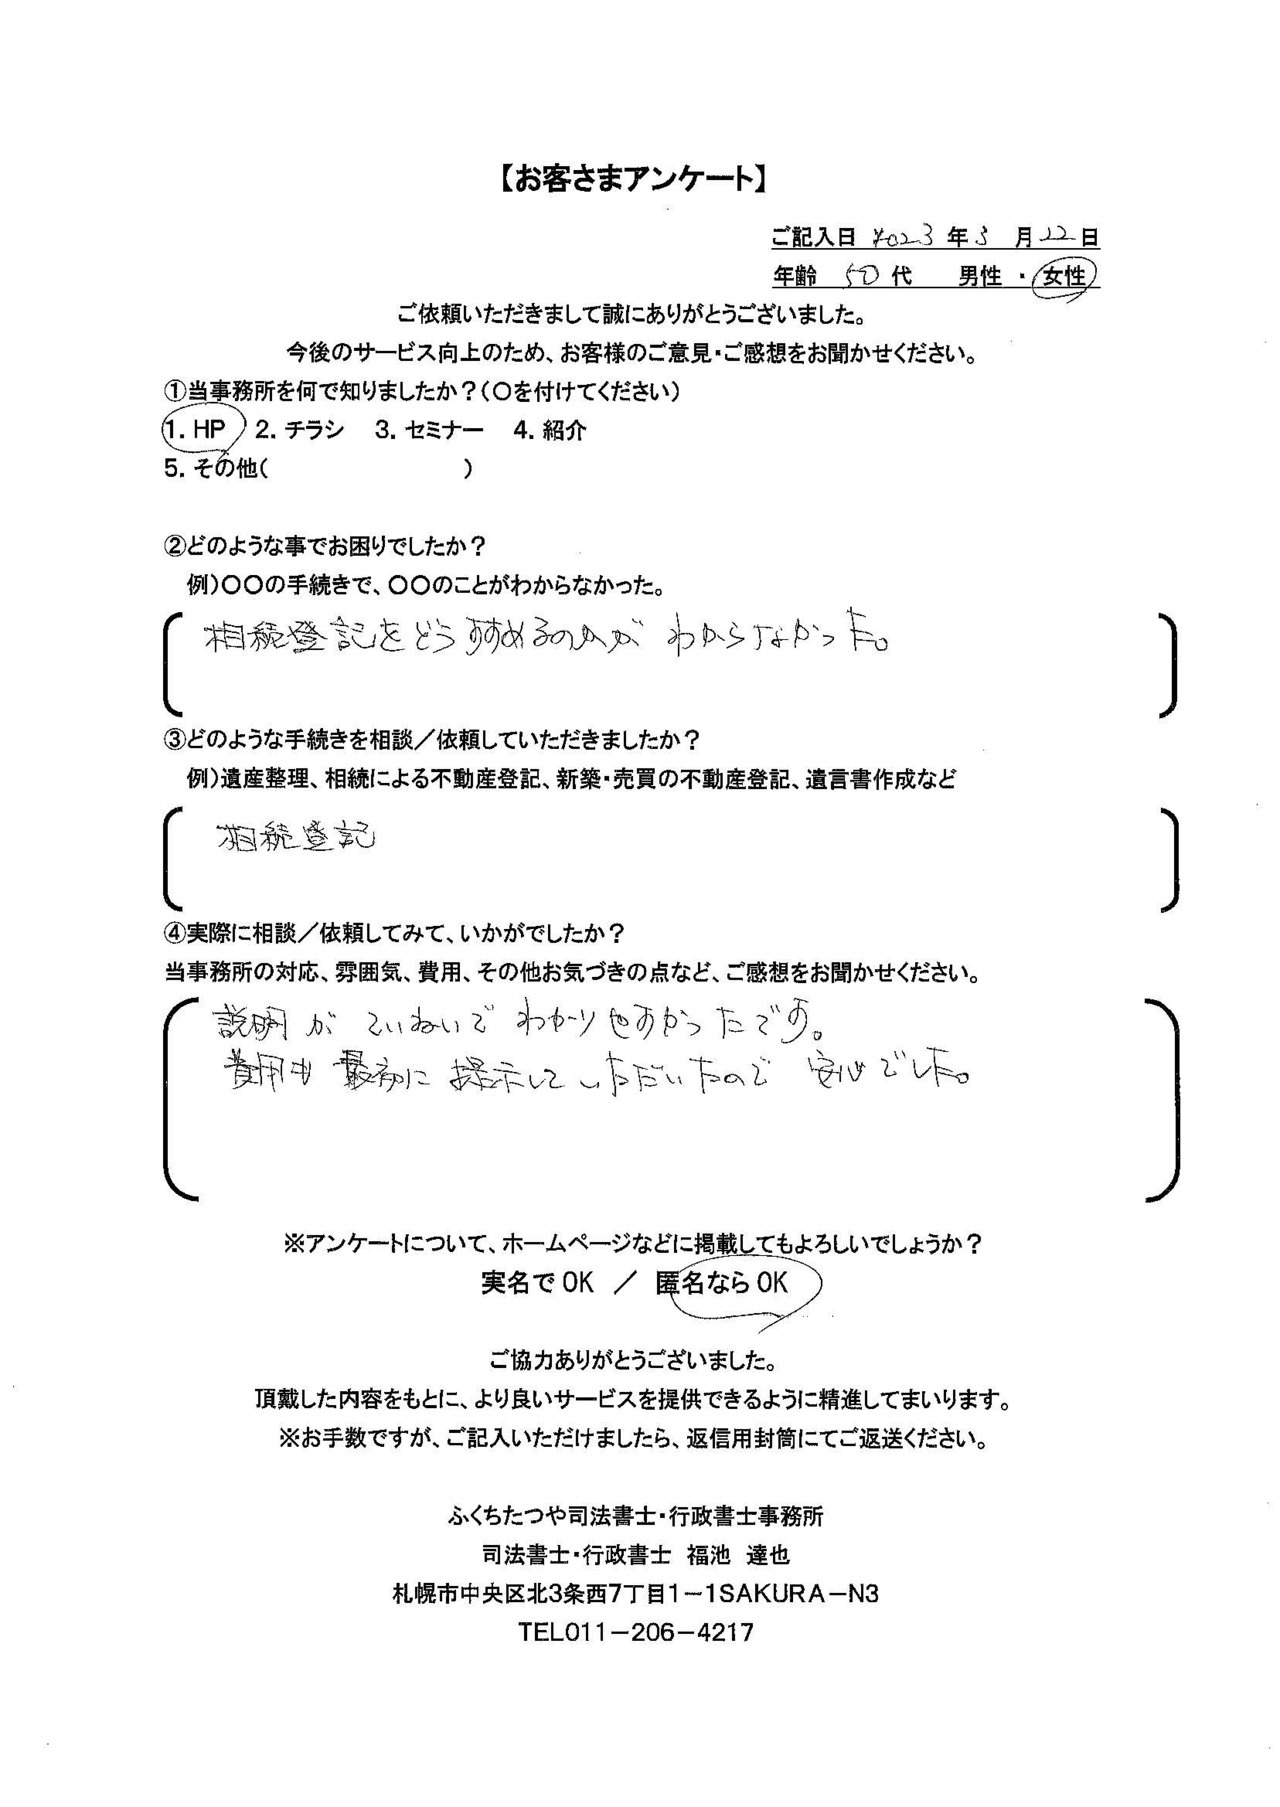 【お客さまアンケート】
ご記入日 2023 年 3 月 22 日
年齢 50 代 男性 ・ 女性
ご依頼いただきまして誠にありがとうございました。
今後のサービス向上のため、お客様のご意見・ご感想をお聞かせください。
①当事務所を何で知りましたか？（○を付けてください）
1. HP 2. チラシ 3. セミナー 4. 紹介
5. その他（ ）
②どのような事でお困りでしたか？
例）○○の手続きで、○○のことがわからなかった。
相続登記をどうすすめるのかが わからなかった。
③どのような手続きを相談／依頼していただきましたか？
例）遺産整理、相続による不動産登記、新築・売買の不動産登記、遺言書作成など
相続登記
④実際に相談／依頼してみて、いかがでしたか？
当事務所の対応、雰囲気、費用、その他お気づきの点など、ご感想をお聞かせください。
説明が ていねいで わかりやすかったです。
費用も 最初に 提示して いただいたので 安心でした。
※アンケートについて、ホームページなどに掲載してもよろしいでしょうか？
実名でOK ／ 匿名ならOK
ご協力ありがとうございました。
頂戴した内容をもとに、より良いサービスを提供できるように精進してまいります。
※お手数ですが、ご記入いただけましたら、返信用封筒にてご返送ください。
ふくちたつや司法書士・行政書士事務所
司法書士・行政書士 福池 達也
札幌市中央区北3条西7丁目1－1SAKURA－N3
TEL011－206－4217